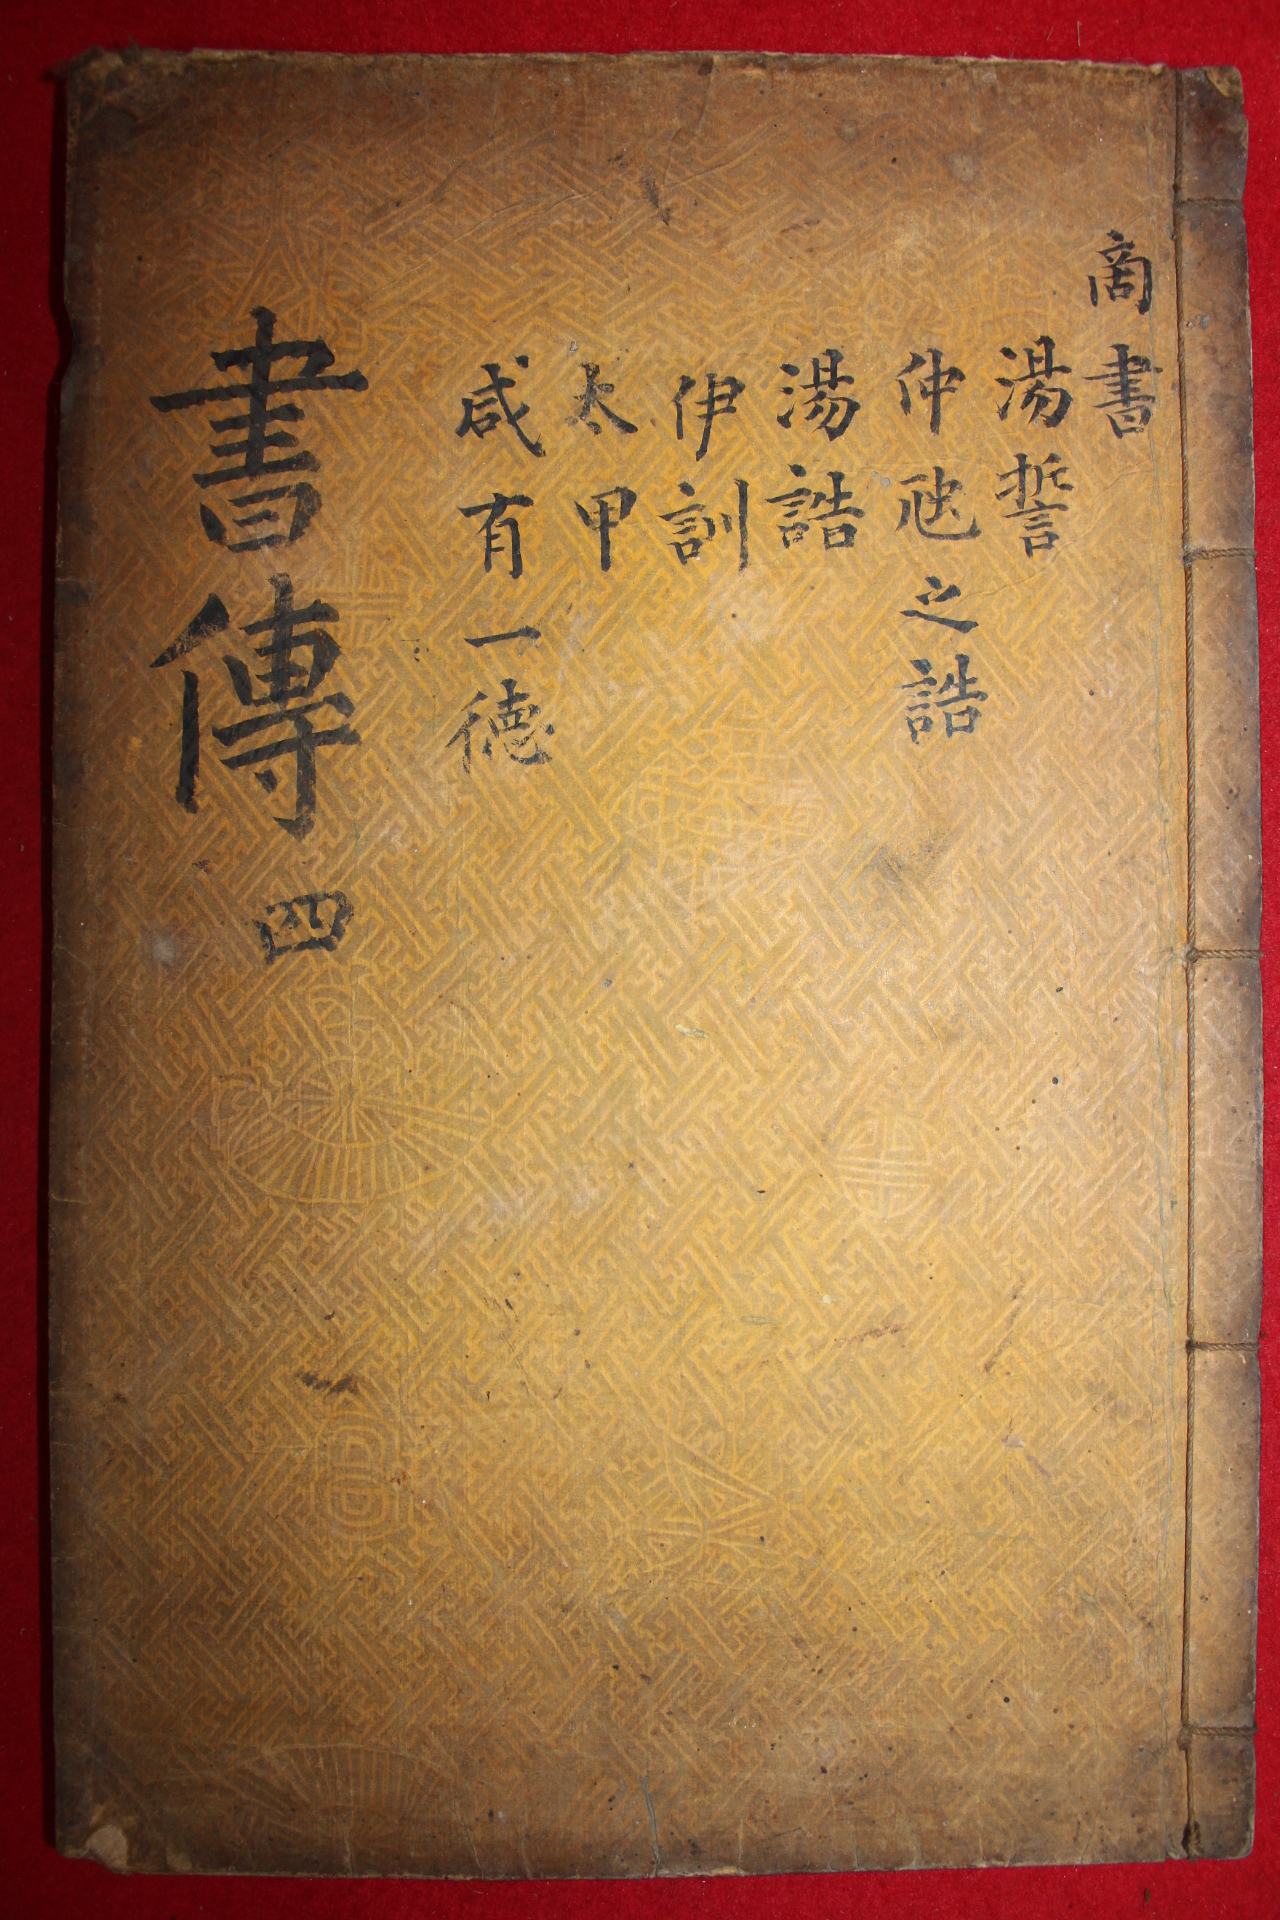 商書
湯誓
仲虺之誥
湯誥
伊訓
太甲
咸有一德
書傳 四